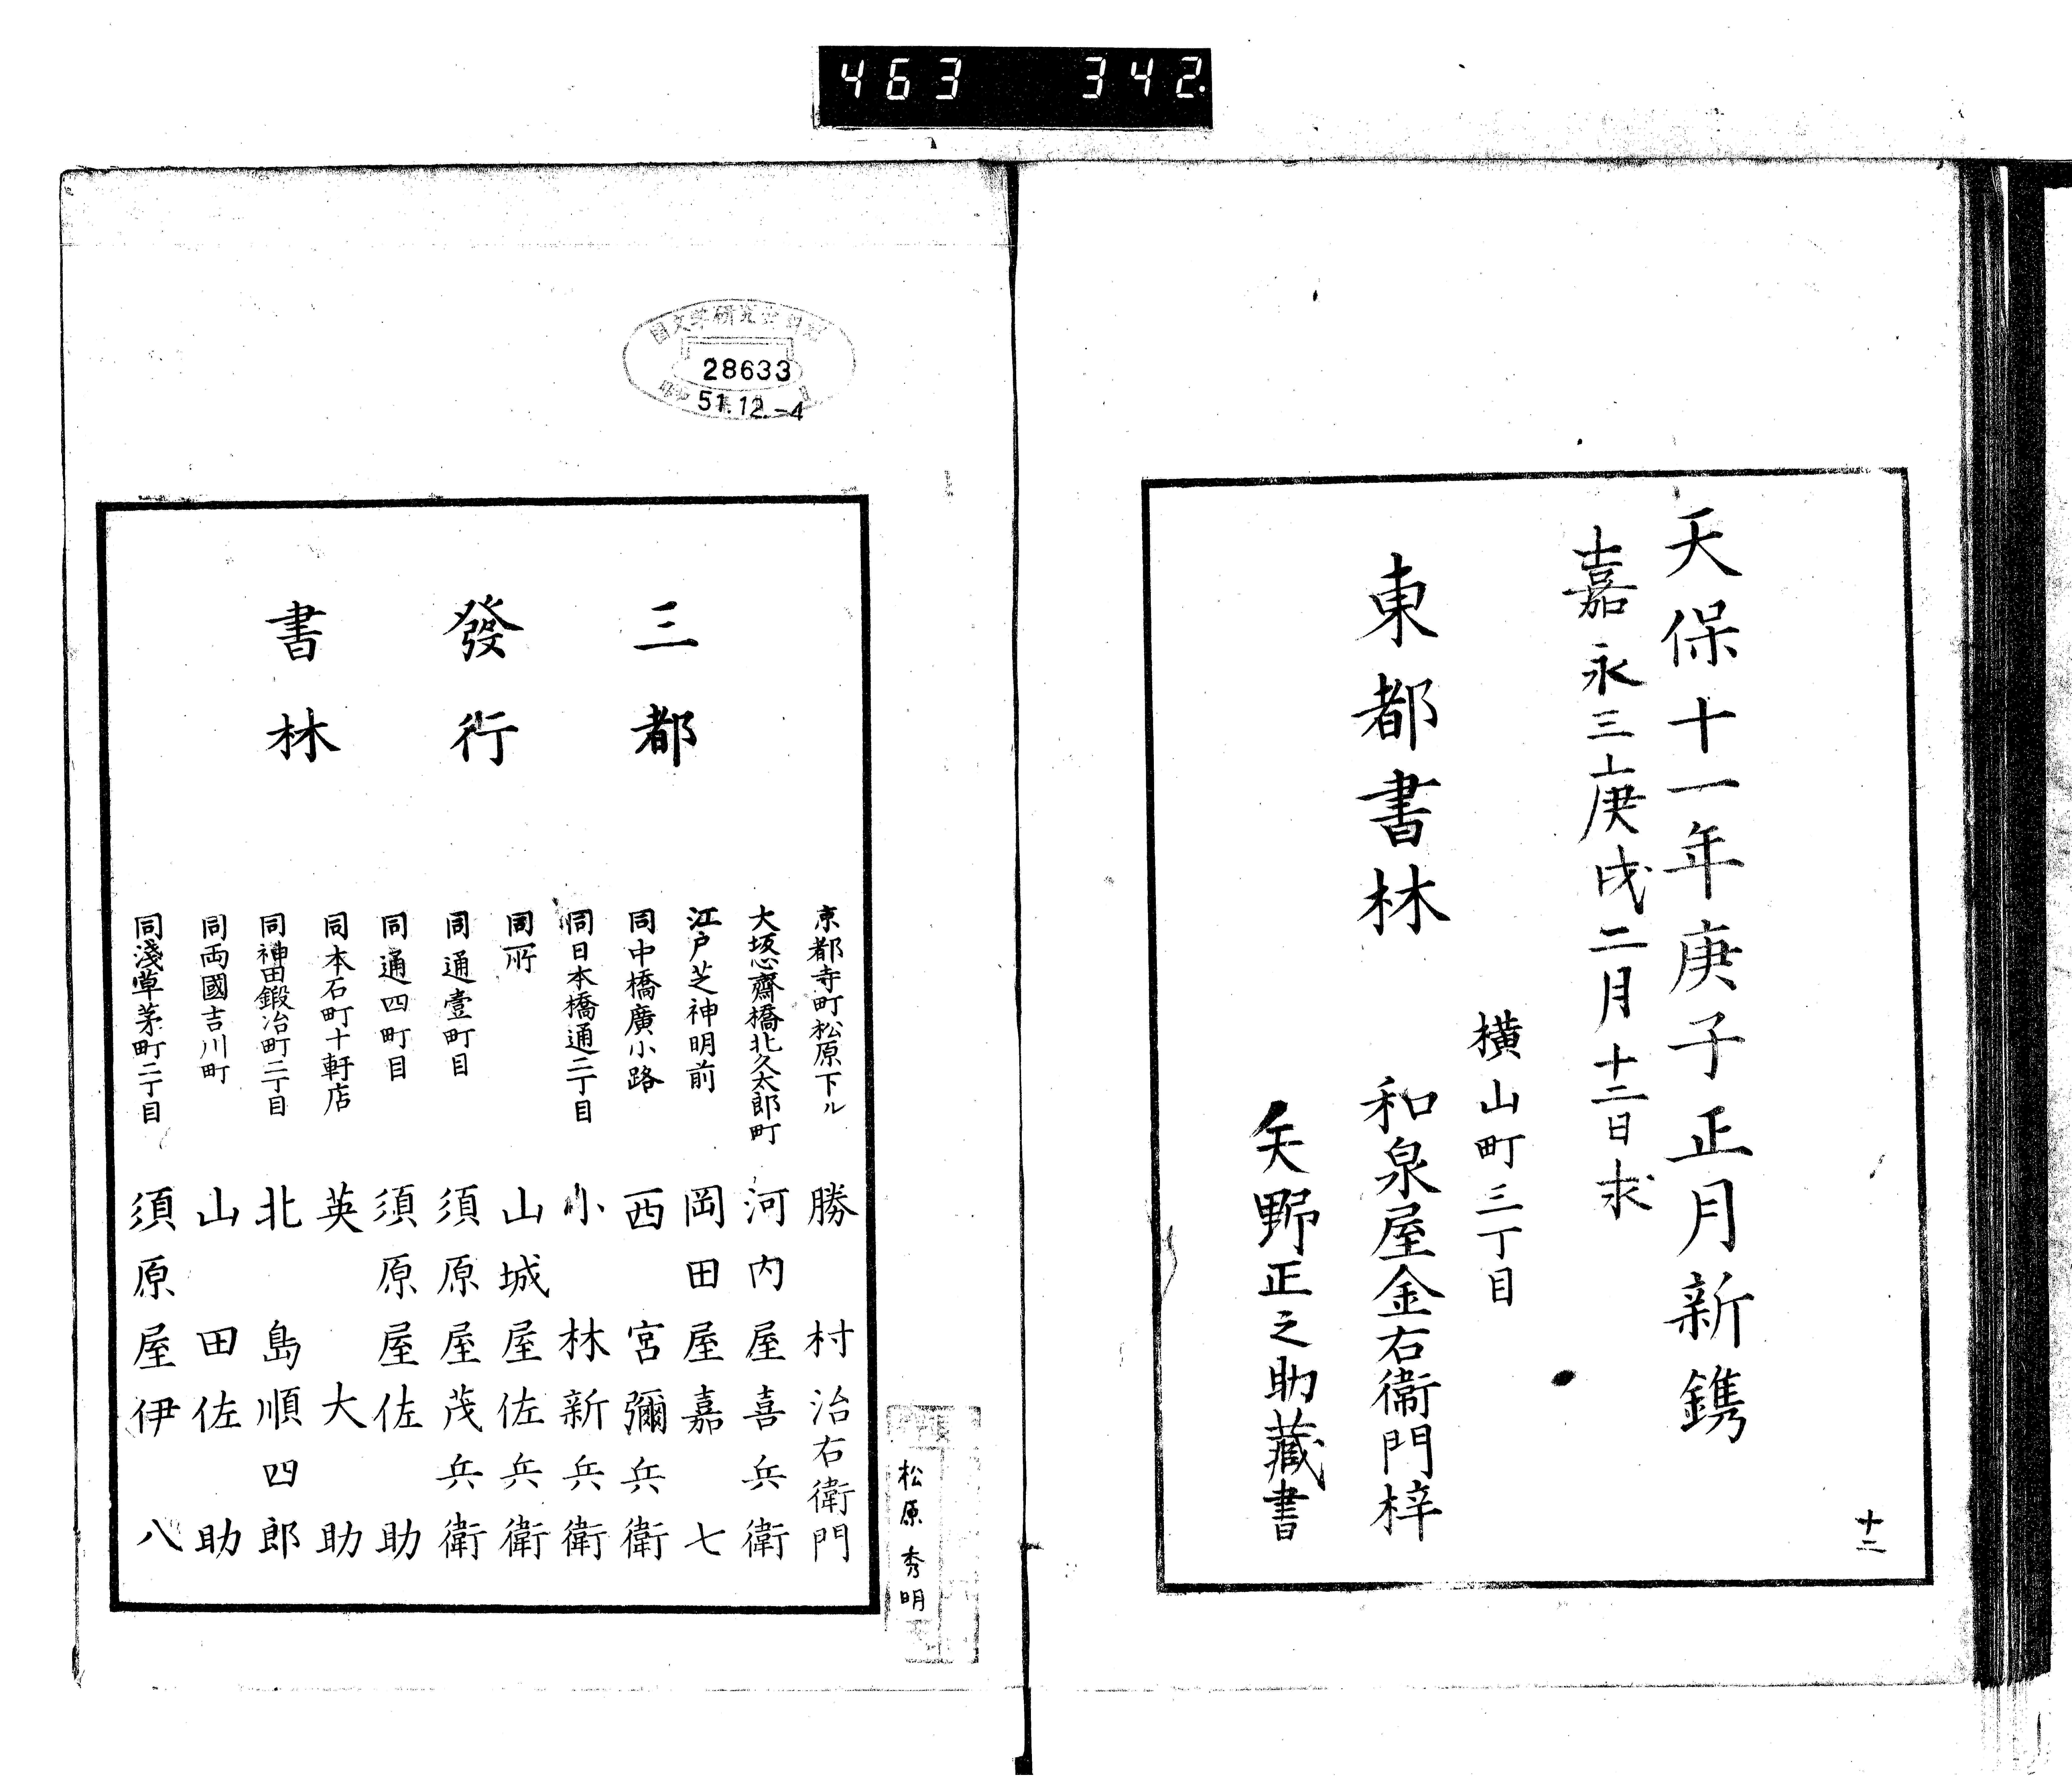 463 342
天保十一年庚子正月新鐫
嘉永三庚戌二月十二日求
横山町三丁目
東都書林 和泉屋金右衞門梓
矢野正之助藏書
十二
28633
51.12.-4
三都
發行
書林
京都寺町松原下ル 勝村治右衛門
大坂心齋橋北久太郎町 河内屋喜兵衛
江戸芝神明前 岡田屋嘉七
同中橋廣小路 西宮彌兵衛
同日本橋通二丁目 小林新兵衛
同所 山城屋佐兵衛
同通壹町目 須原屋茂兵衛
同通四町目 須原屋佐助
同本石町十軒店 英大助
同神田鍛冶町二丁目 北島順四郎
同両國吉川町 山田佐助
同淺草茅町二丁目 須原屋伊八
松原秀明